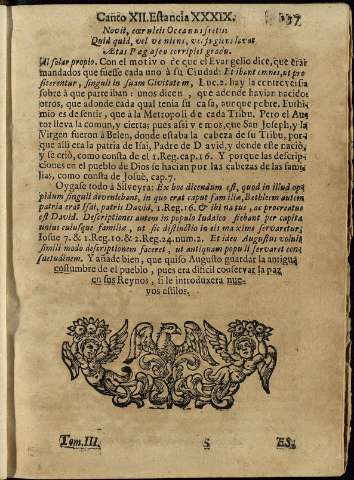 Canto XII. Estancia XXXIX. 137
Novit, cæruleis Oceani iectus
Quid quid, vel veniens, vel
Ætas Pegaseo corripiet gradu.
Al solar propio. Con el motivo de que el Evangelio dice, que eran
mandados que fuesse cada uno à su Ciudad: Et ibant omnes, ut pro
fiterentur, singuli in suam Civitatem, Luc. 2. hay la controversia
sobre à que parte iban: unos dicen, que adonde havian nacido:
otros, que adonde cada qual tenia su casa, aunque pobre. Euthi-
mio es de sentir, que à la Metropoli de cada Tribu. Pero el Au-
tor lleva la comun, y cierta; pues assi vemos, que San Joseph, y la
Virgen fueron à Belèn, donde estaba la cabeza de su Tribu, por-
que alli era la patria de Isaì, Padre de David, y donde este naciò,
y se criò, como consta de el 1. Reg. cap. 16. Y porque las descrip-
ciones en el pueblo de Dios se hacian por las cabezas de las fami-
lias, como consta de Josuè, cap. 7.
Oygase todo à Silveyra: Ex hoc dicendum est, quod in illud op-
pidum singuli deventebant, in quo erat caput familiæ, Bethlem autem
patria erat Isai, patris David, 1. Reg. 16. & ibi natus, ac procreatus
est David. Descriptiones autem in populo Iudaico fiebant per capita
unius cuiusque familiæ, ut sic distinctio in eis maximè servaretur;
Iosue 7. & 1. Reg. 10. & 2. Reg. 24. num. 2. Et ideo Augustus voluit
simili modo descriptionem faceret, ut antiquam populi servaret con-
suetudinem. Y añade bien, que quiso Augusto guardar la antigua
costumbre de el pueblo, pues era dificil conservar la paz
en sus Reynos, si le introduxera nue-
vos estilos.
Tom. III. S ES-